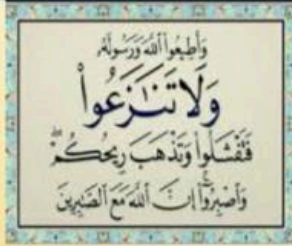 وَأَطِيعُوا۟ ٱللَّهَ وَرَسُولَهُۥ
وَلَا تَنَـٰزَعُوا۟
فَتَفْشَلُوا۟ وَتَذْهَبَ رِيحُكُمْ ۖ
وَٱصْبِرُوٓا۟ إِنَّ ٱللَّهَ مَعَ ٱلصَّـٰبِرِينَ